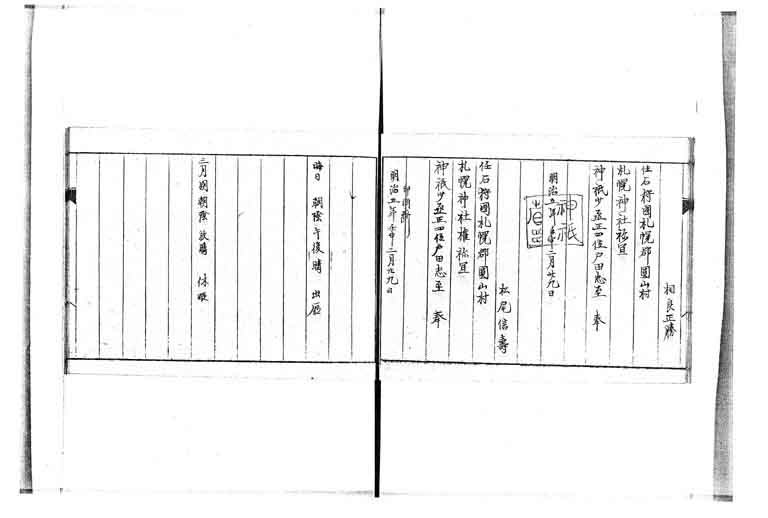 相良正勝
任石狩國札幌郡圓山村
札幌神社祢宜
神祇少丞正四位戸田忠至 奉
明治五年壬申二月廿九日
神祇
松尾信壽
任石狩國札幌郡圓山村
札幌神社權祢宜
神祇少丞正四位戸田忠至 奉
明治五年壬申二月廿九日
晦日 朝陰午後晴 出廳
三月 朝陰 晴 休暇